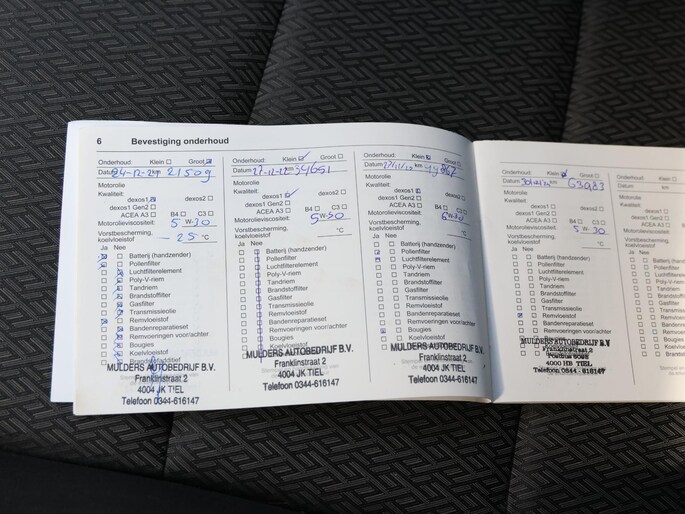 6 Bevestiging onderhoud
Onderhoud: Klein Groot
Datum 24-12-2 km 21509
Motorolie
Kwaliteit:
dexos1 dexos2
dexos1 Gen2
ACEA A3 B4 C3
Motorolieviscositeit: 5 W-30
Vorstbescherming,
koelvloeistof - 25 °C
Ja Nee
Batterij (handzender)
Pollenfilter
Luchtfilterelement
Poly-V-riem
Tandriem
Brandstoffilter
Gasfilter
Transmissieolie
Remvloeistof
Bandenreparatieset
Remvoeringen voor/achter
Bougies
Koelvloeistof
MULDERS AUTOBEDRIJF B.V.
Franklinstraat 2
4004 JK TIEL
Telefoon 0344-616147
Onderhoud: Klein Groot
Datum 27-12-22 km 34651
Motorolie
Kwaliteit:
dexos1 dexos2
dexos1 Gen2
ACEA A3 B4 C3
Motorolieviscositeit: 5W-30
Vorstbescherming,
koelvloeistof °C
Ja Nee
Batterij (handzender)
Pollenfilter
Luchtfilterelement
Poly-V-riem
Tandriem
Brandstoffilter
Gasfilter
Transmissieolie
Remvloeistof
Bandenreparatieset
Remvoeringen voor/achter
Bougies
Koelvloeistof
MULDERS AUTOBEDRIJF B.V.
Franklinstraat 2
4004 JK TIEL
Telefoon 0344-616147
Onderhoud: Klein Groot
Datum km
Motorolie
Kwaliteit:
dexos1 dexos2
dexos1 Gen2
ACEA A3 B4 C3
Motorolieviscositeit: W-30
Vorstbescherming,
koelvloeistof °C
Ja Nee
Batterij (handzender)
Pollenfilter
Luchtfilterelement
Poly-V-riem
Tandriem
Brandstoffilter
Gasfilter
Transmissieolie
Remvloeistof
Bandenreparatieset
Remvoeringen voor/achter
Bougies
Koelvloeistof
MULDERS AUTOBEDRIJF B.V.
Franklinstraat 2
4004 JK TIEL
Telefoon 0344-616147
Onderhoud: Klein Groot
Datum km 63083
Motorolie
Kwaliteit:
dexos1 dexos2
dexos1 Gen2
ACEA A3 B4 C3
Motorolieviscositeit: 5 W-30
Vorstbescherming,
koelvloeistof °C
Ja Nee
Batterij (handzender)
Pollenfilter
Luchtfilterelement
Poly-V-riem
Tandriem
Brandstoffilter
Gasfilter
Transmissieolie
Remvloeistof
Bandenreparatieset
Remvoeringen voor/achter
MULDERS AUTOBEDRIJF B.V.
Franklinstraat 2
4000 HB TIEL
Telefoon 0344 - 616147
Onderhoud: Klein
Datum km
Motorolie
Kwaliteit:
dexos1
dexos1 Gen2
ACEA A3
Motorolieviscositeit:
Vorstbescherming,
koelvloeistof
Ja Nee